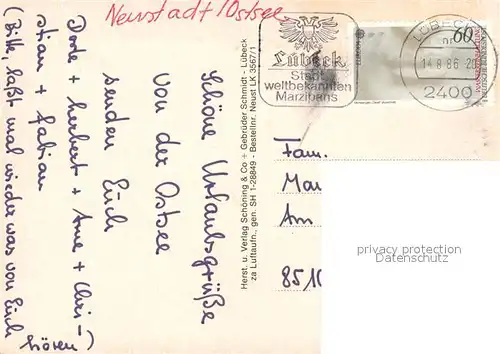 Neustadt/Ostsee
Schöne Urlaubsgrüße
von der Ostsee
senden Euch
Dode + Herbert + Arne + Chri-
stian + Fabian
(Bitte, laßt mal wieder was von Euch
hören)
Herst. u. Verlag Schöning & Co + Gebrüder Schmidt - Lübeck
za Luftaufn., gen. SH 1-28849 - Bestellnr. Neust LK 3567/1
Lübeck
Stadt
weltbekannten
Marzipans
LÜBECK
14.8.86-20
2400
60
EUROPA
DEUTSCHE BUNDESPOST
Fam.
Mar
Am
8510
privacy protection
Datenschutz